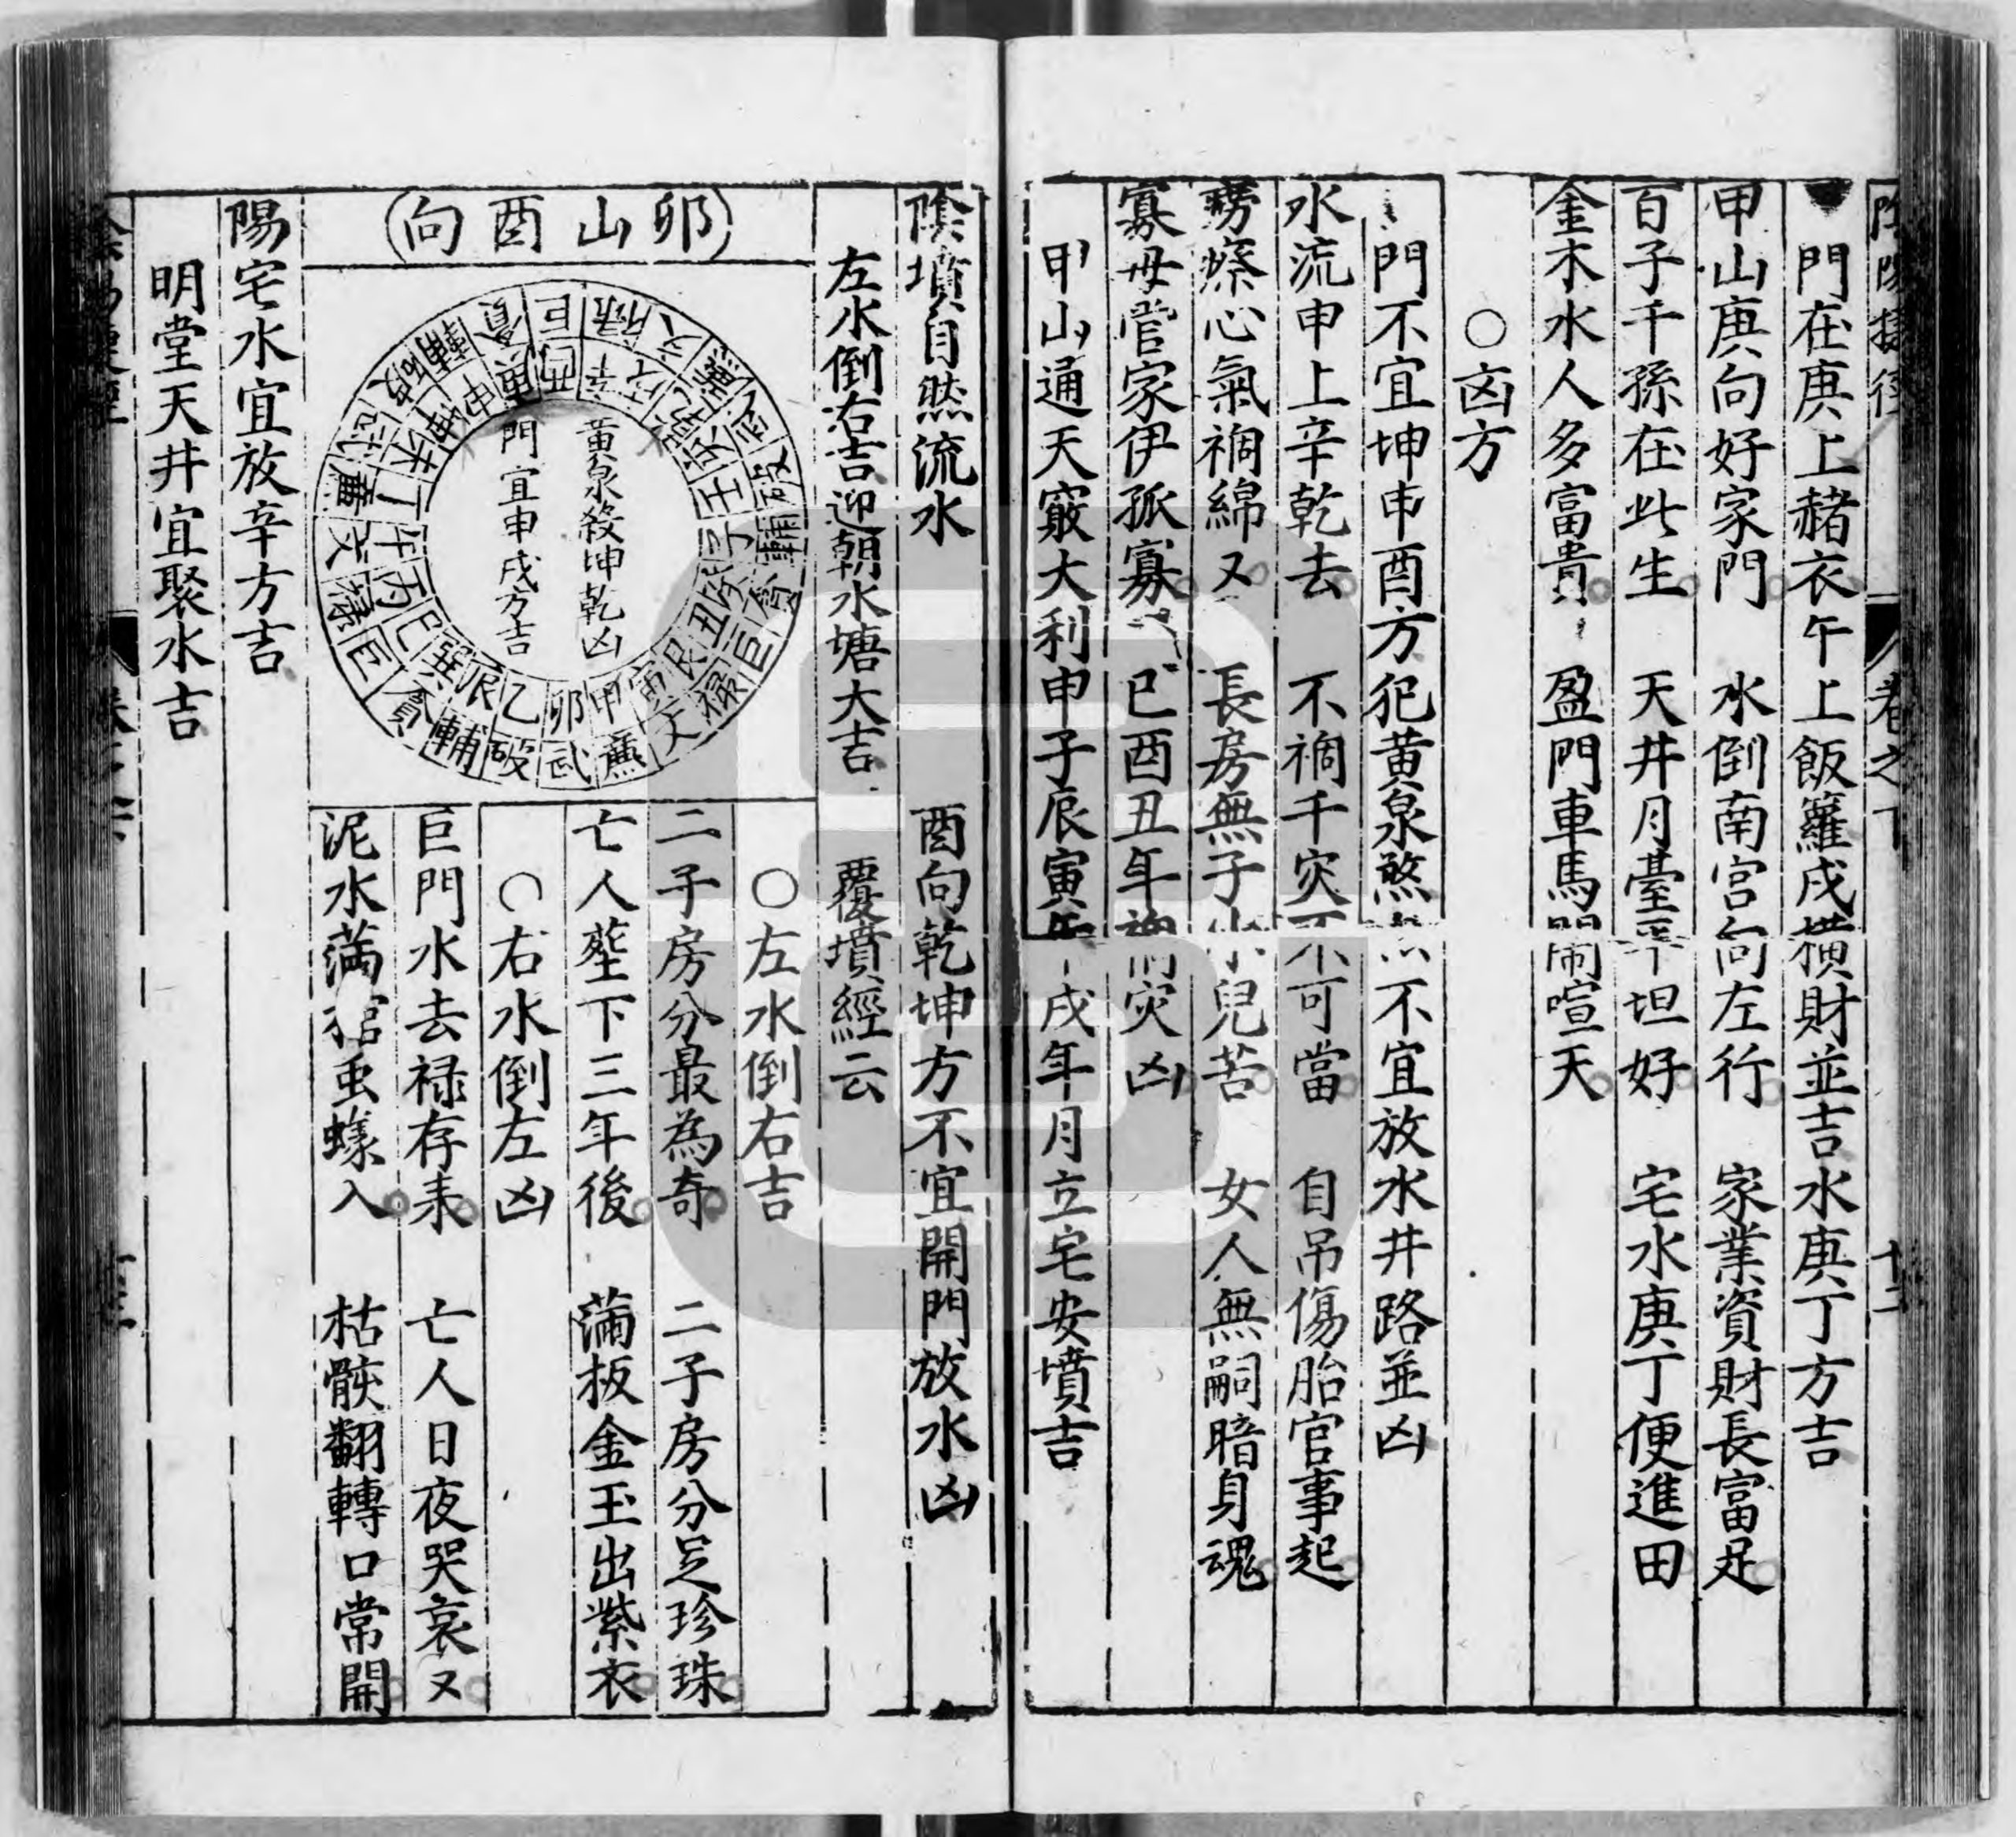 門在庚上赭衣午上飯籮戌橫財並吉水庚丁方吉
甲山庚向好家門　水倒南宮向左行　家業資財長富足
百子千孫在此生　天井月臺平坦好　宅水庚丁便進田
金木水人多富貴　盈門車馬鬧喧天
○凶方
門不宜坤申酉方犯黃泉煞不宜放水井路並凶
水流申上辛乾去　不禍千灾不可當　自吊傷胎官事起
癆瘵心氣禍綿又　長房無子小兒苦　女人無嗣暗身魂
寡母管家伊孤寡　巳酉丑年灾凶
甲山通天竅大利申子辰寅午戌年月立宅安墳吉
陰墳自然流水　酉向乾坤方不宜開門放水凶
左水倒右吉迎朝水塘大吉　覆墳經云
卯山酉向
黃泉殺坤乾凶
門宜申戌方吉
○左水倒右吉
二子房分最為奇　二子房分足珍珠
亡人塟下三年後　滿板金玉出紫衣
○右水倒左凶
巨門水去祿存来　亡人日夜哭哀又
泥水滿棺虫蟻入　枯骸翻轉口常開
陽宅水宜放辛方吉
明堂天井宜聚水吉